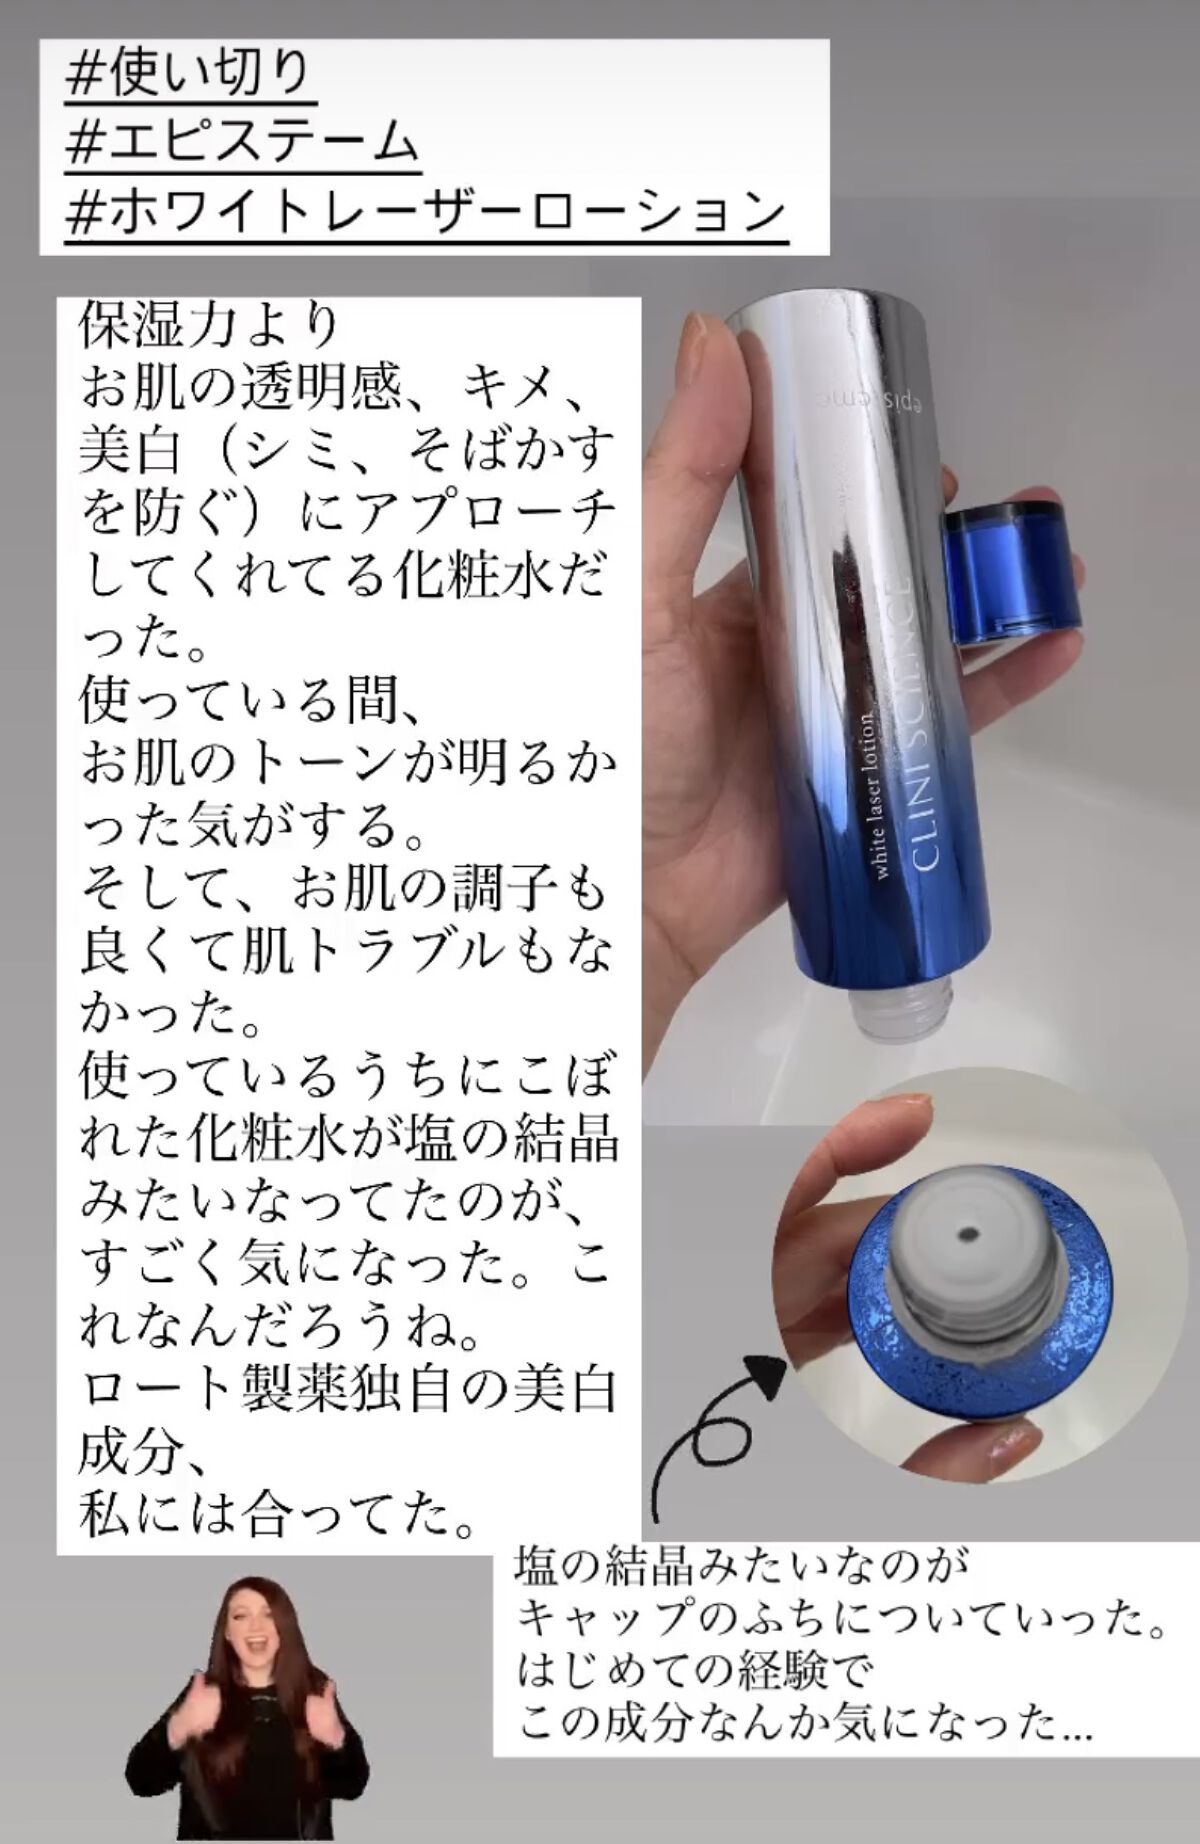 #使い切り
#エピステーム
#ホワイトレーザーローション
保湿力より
お肌の透明感、キメ、
美白（シミ、そばかす
を防ぐ）にアプローチ
してくれてる化粧水だ
った。
使っている間、
お肌のトーンが明るか
った気がする。
そして、お肌の調子も
良くて肌トラブルもな
かった。
使っているうちにこぼ
れた化粧水が塩の結晶
みたいなってたのが、
すごく気になった。こ
れなんだろうね。
ロート製薬独自の美白
成分、
私には合ってた。
episteme
white laser lotion
CLINI SCIENCE
塩の結晶みたいなのが
キャップのふちについていった。
はじめての経験で
この成分なんか気になった...